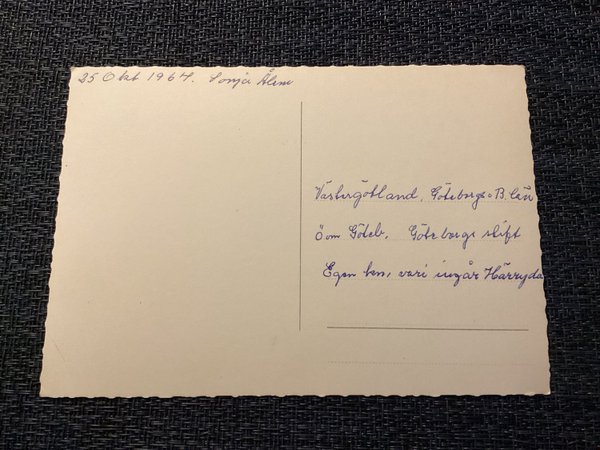 25 Okt 1964. Sonja Åleni
Västergötland, Göteborgs o B. län
ö om Göteb. Göteborgs stift
Egen ben, vari ingår Härryda